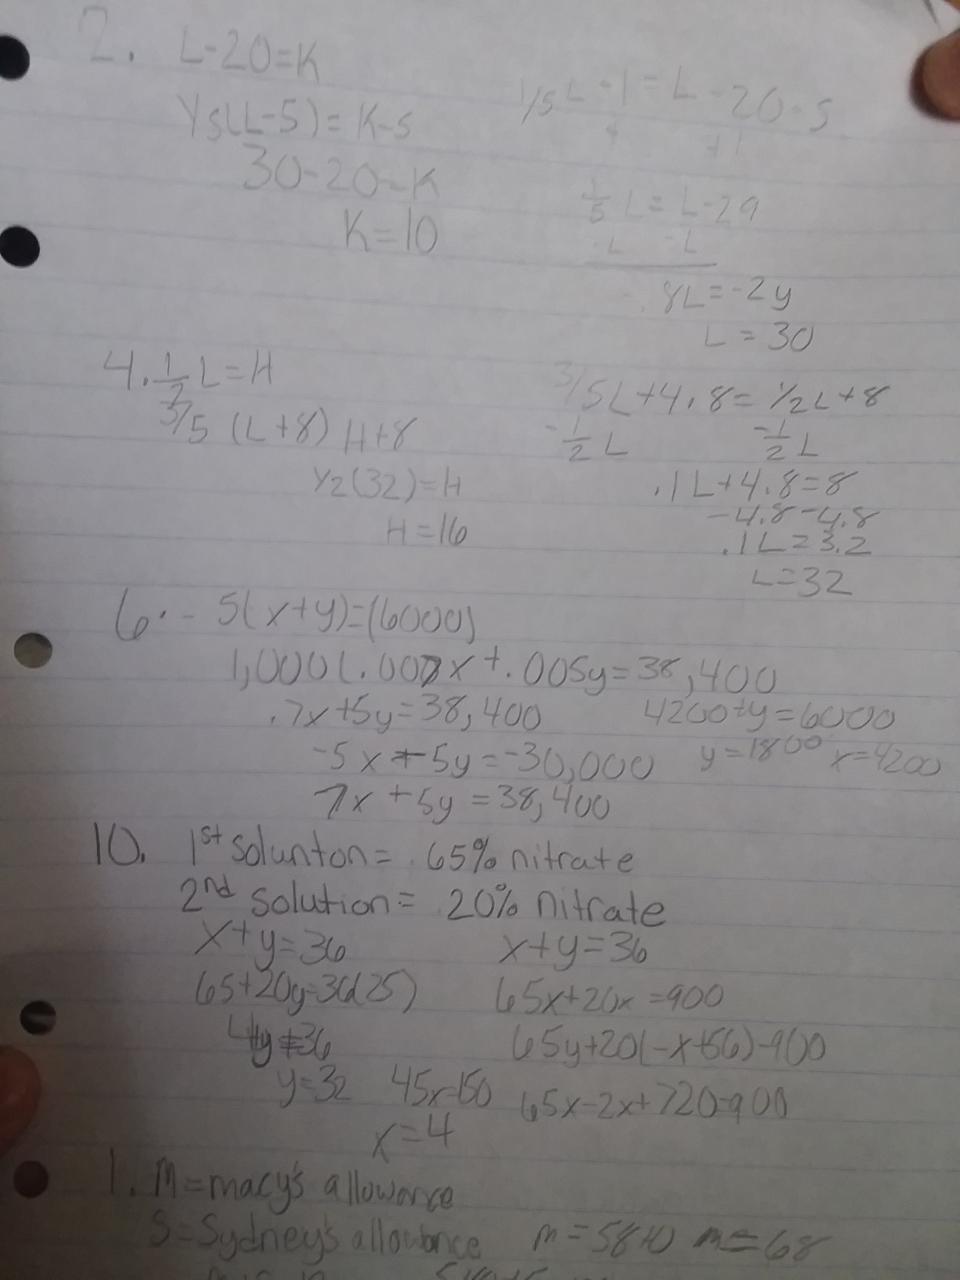 2. L-20=K
1/5L-1=L-20-5
1/5(L-5)=K-5
+1
30-20=K
1/5 L=L-29
K=10
-L -L
.8L=-24
L=30
4. 1/2 L=H
3/5L+4.8=1/2L+8
3/5 (L+8) H+8
-1/2 L -1/2 L
1/2(32)=H
.1L+4.8=8
H=16
-4.8-4.8
.1L=3.2
L=32
6. -5(x+y)=(6000)
1,000(.007x+.005y=38,400
.7x+5y=38,400
4200+y=6000
-5x+-5y=-30,000
y=1800 x=4200
7x+5y=38,400
10. 1st solunton= .65% nitrate
2nd solution= .20% nitrate
x+y=36
x+y=36
65+20y=36(25)
65x+20x=900
4+y=36
65y+20(-x+56)-900
y=32
45x-150
65x-2x+720-900
x=4
1. M=macy's allowance
S=Sydney's allowance
m=58+10 m=68